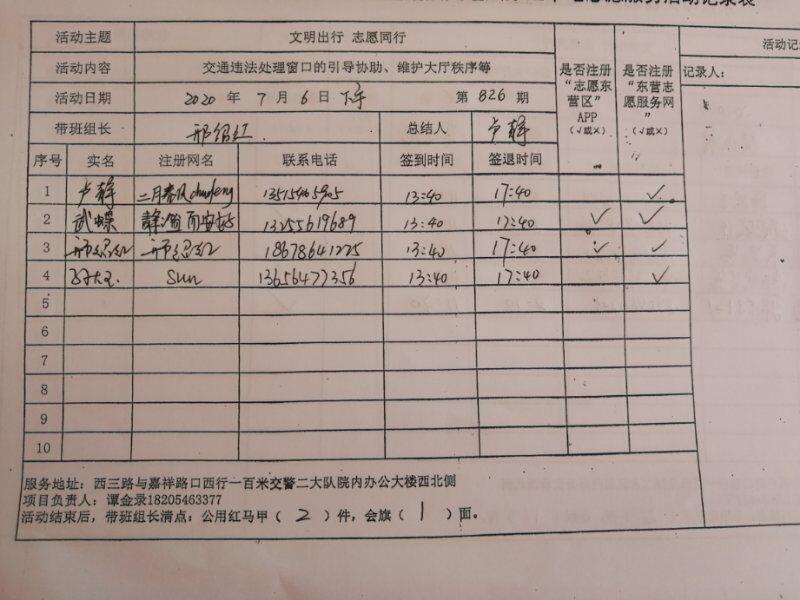 志愿服务活动记录表
活动主题 文明出行 志愿同行
活动内容 交通违法处理窗口的引导协助、维护大厅秩序等
活动日期 2020 年 7 月 6 日 下午 第 826 期
是否注册“志愿东营区”APP（√或×）
是否注册“东营志愿服务网”（√或×）
活动记
记录人：
带班组长 邢绍红 总结人 卢静
序号 实名 注册网名 联系电话 签到时间 签退时间
1 卢静 二月春风 13:40 17:40 √
2 武蝶 13255619689 13:40 17:40 √ √
3 邢绍红 邢绍红 18678641225 13:40 17:40 √ √
4 Sun 13656477356 13:40 17:40 √
5
6
7
8
9
10
服务地址：西三路与嘉祥路口西行一百米交警二大队院内办公大楼西北侧
项目负责人：谭金录18205463377
活动结束后，带班组长清点：公用红马甲（ 2 ）件，会旗（ 1 ）面。